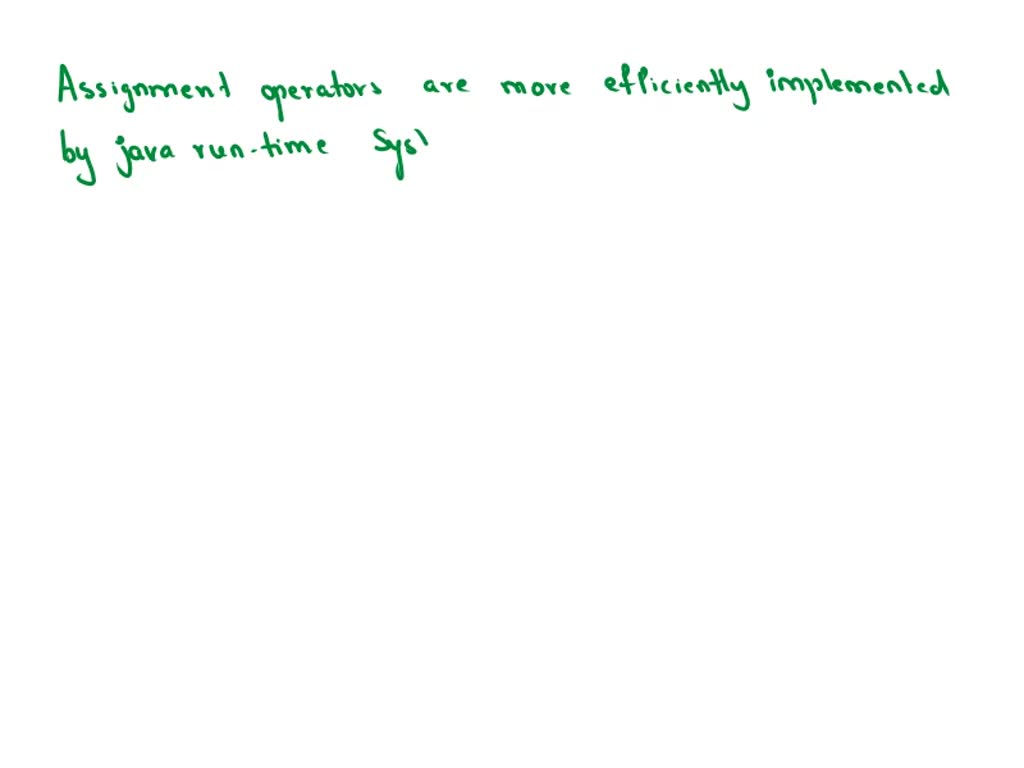 Assignment operators are more efficiently implemented
by java run-time Sys